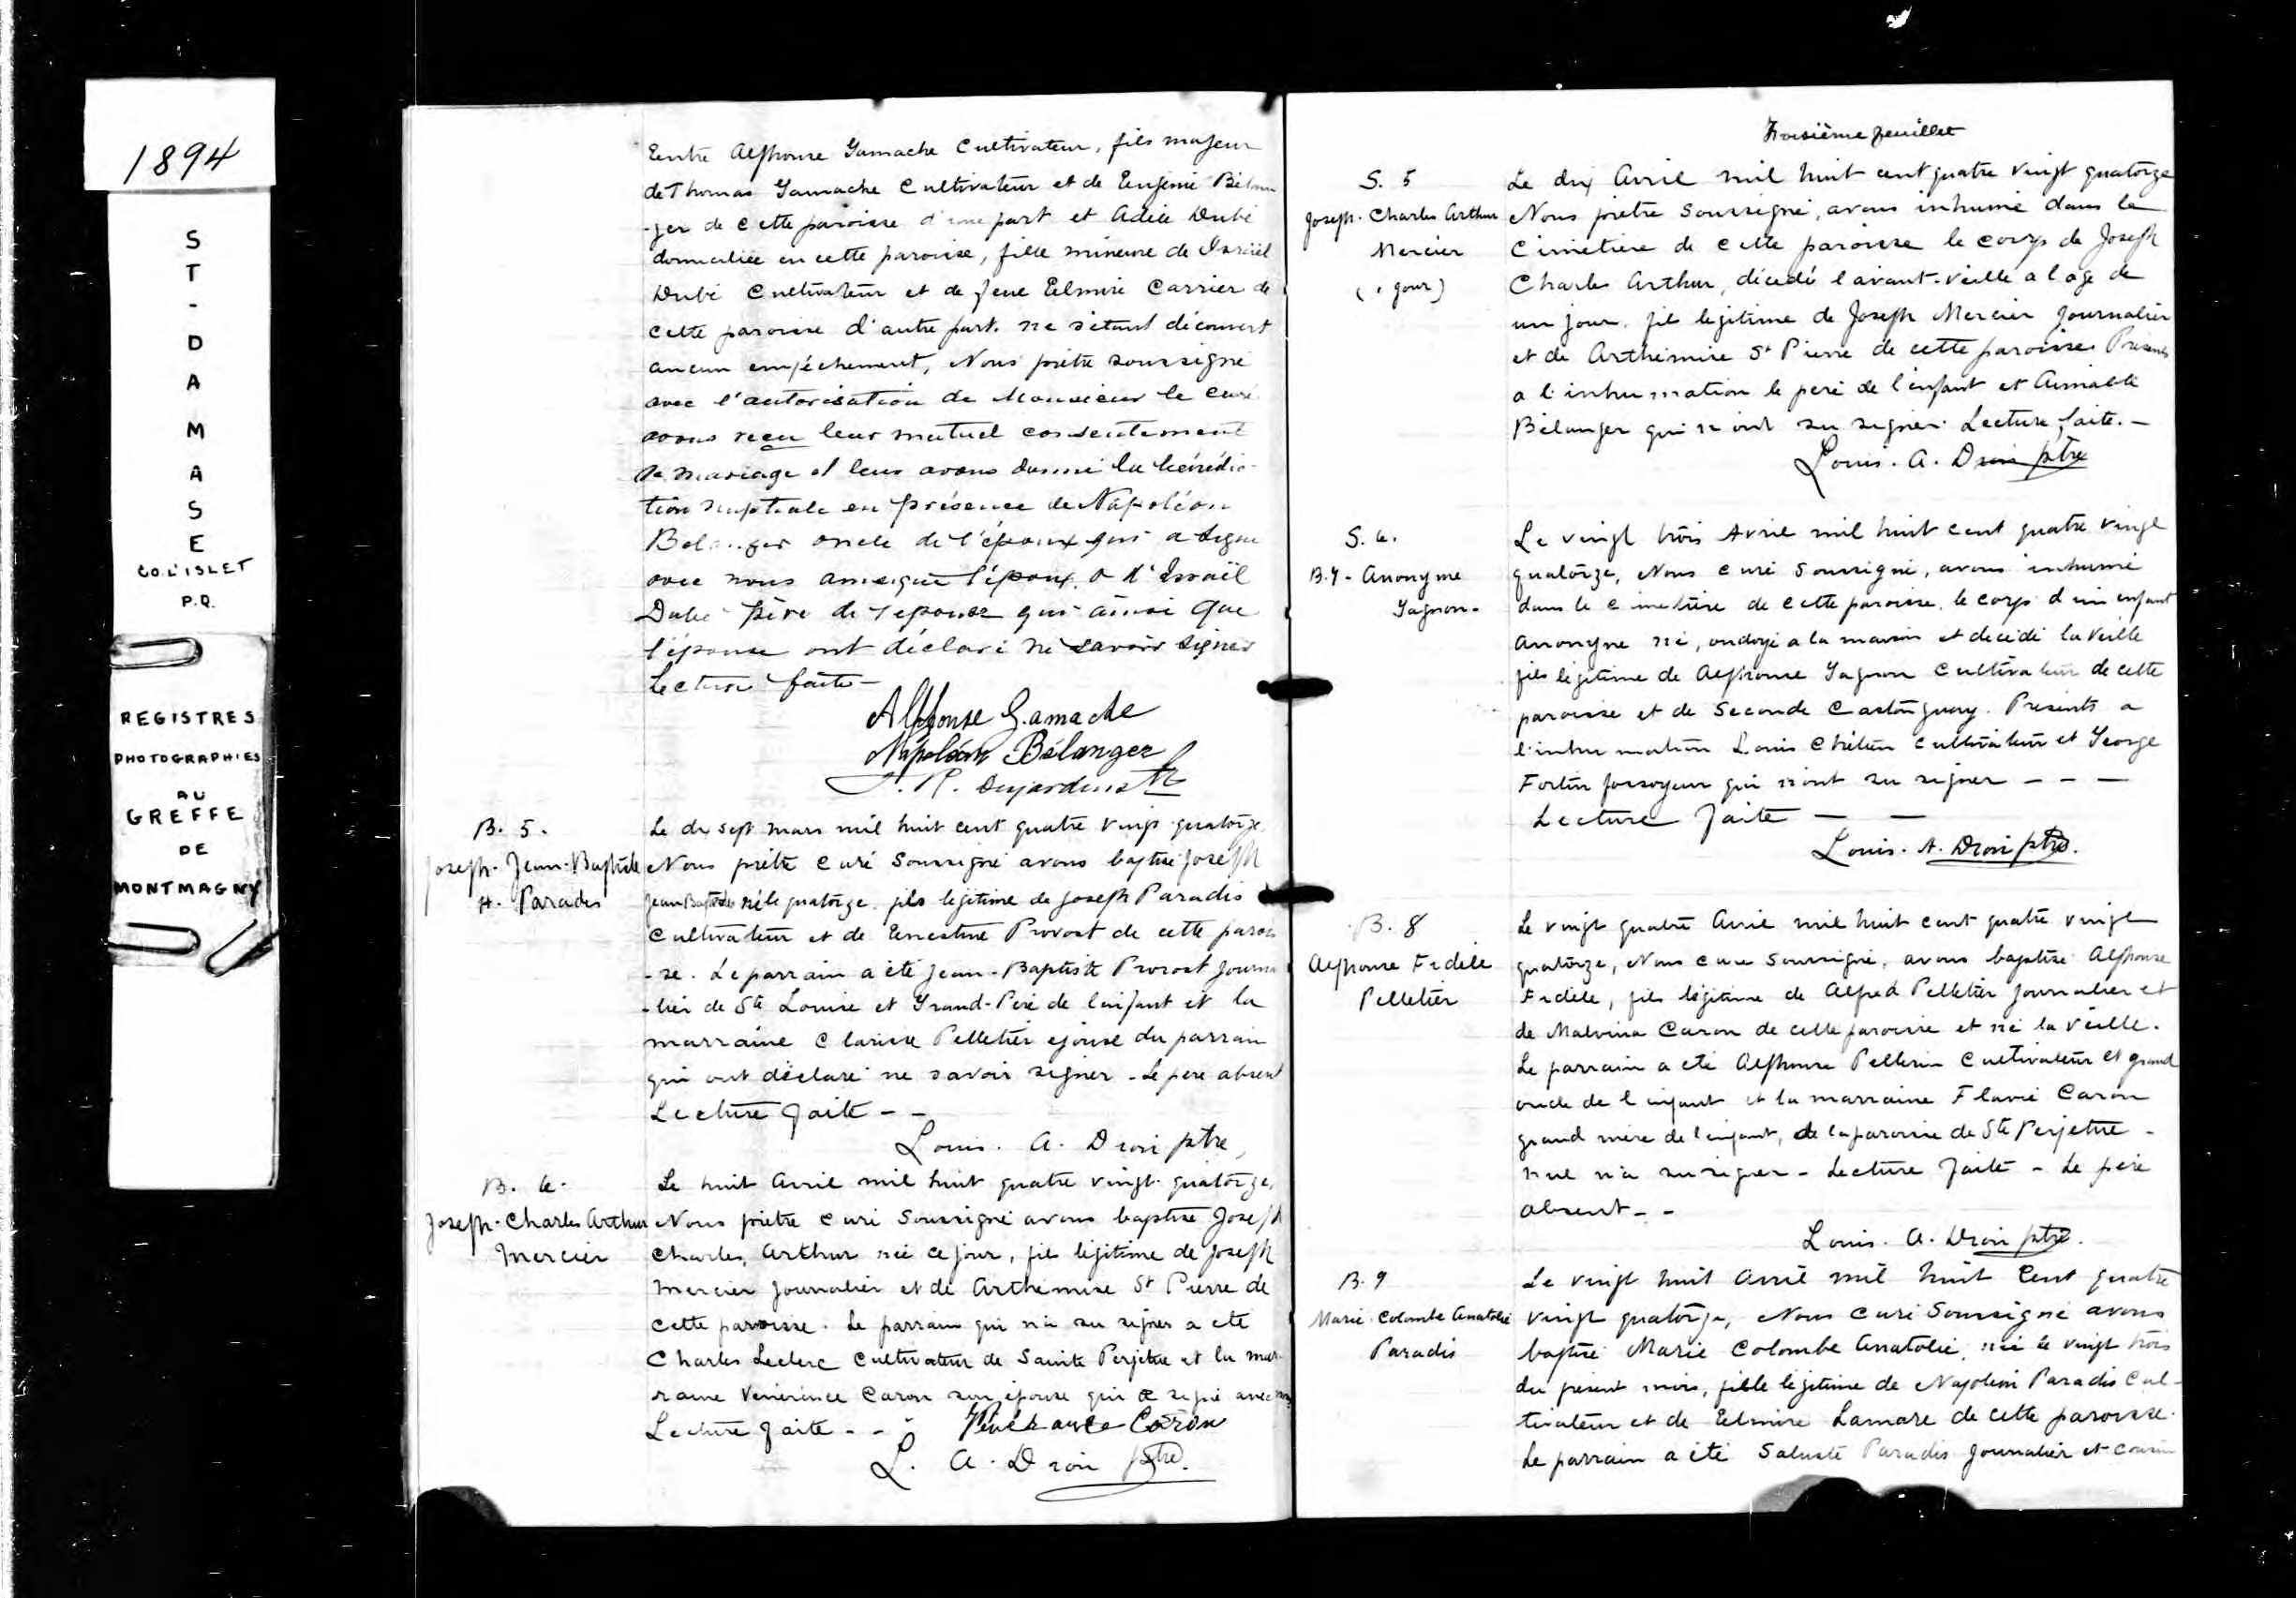 1894
ST-DAMASE
CO. L'ISLET
P.Q.
REGISTRES
PHOTOGRAPHIES
AU
GREFFE
DE
MONTMAGNY
Entre Alphonse Gamache Cultivateur, fils majeur
de Thomas Gamache Cultivateur et de Eugénie Bélan
-ger de cette paroisse d'une part et Adèle Dubé
domiciliée en cette paroisse, fille mineure de Israël
Dubé Cultivateur et de feue Elmire Carrier de
cette paroisse d'autre part. ne s'étant découvert
aucun empêchement, Nous prêtre soussigné
avec l'autorisation de Monsieur le curé
avons reçu leur mutuel consentement
de mariage et leur avons donné la bénédic-
tion nuptiale en présence de Napoléon
Belanger oncle de l'époux qui a signé
avec nous ainsi que l'époux. & d'Israël
Dubé père de l'epouse qui ainsi que
l'épouse ont déclaré ne savoir signer
Lecture faite -
Alphonse Gamache
Napoléon Bélanger
R. Dujardins
B. 5.
Joseph. Jean-Baptiste
H. Paradis
Le dix sept mars mil huit cent quatre vingt quatorze
Nous prêtre curé soussigné avons baptisé Joseph
Jean Baptiste né le quatorze, fils légitime de Joseph Paradis
Cultivateur et de Ernestine Provost de cette parois
-se. Le parrain a été Jean-Baptiste Provost Journa
-lier de Ste Louise et Grand-Père de l'enfant et la
marraine Clarisse Pelletier épouse du parrain
qui ont déclaré ne savoir signer - Le pere absent
Lecture faite - -
Louis. A. Dion ptre
B. 6.
Joseph. Charles Arthur
Mercier
Le huit Avril mil huit quatre vingt quatorze,
Nous prêtre curé soussigné avons baptisé Joseph
Charles, Arthur né ce jour, fils légitime de Joseph
Mercier Journalier et de Arthemise St Pierre de
cette paroisse. Le parrain qui n'a su signer a été
Charles Leclerc Cultivateur de Sainte Perpétue et la mar-
raine Vénérence Caron son épouse qui a signé avec nous
Lecture faite - - Vénérance Caron
L. A. Dion ptre.
Troisième feuillet
S. 5
Joseph. Charles Arthur
Mercier
(1 jour)
Le dix Avril mil huit cent quatre vingt quatorze
Nous prêtre soussigné, avons inhumé dans le
Cimetière de cette paroisse le corps de Joseph
Charles Arthur, décédé l'avant-veille a l'age de
un jour. fils legitime de Joseph Mercier Journalier
et de Arthémire St Pierre de cette paroisse Présents
a l'inhumation le père de l'enfant et Aimable
Bélanger qui n'ont su signer. Lecture faite. -
Louis. A. Dion ptre
S. 6.
B. 7 - Anonyme
Gagnon-
Le vingt trois Avril mil huit cent quatre vingt
quatorze, Nous curé soussigné, avons inhumé
dans le cimetière de cette paroisse, le corps d'un enfant
anonyme né, ondoyé a la maison et décédé la veille
fils légitime de Alphonse Gagnon Cultivateur de cette
paroisse et de Seconde Castonguay. Présents a
l'inhumation Louis Chrétien Cultivateur et George
Fortin fossoyeur qui n'ont su signer - - -
Lecture faite - -
Louis. A. Dion ptre.
B. 8
Alphonse Fidèle
Pelletier
Le vingt quatre Avril mil huit cent quatre vingt
quatorze, Nous curé soussigné, avons baptisé Alphonse
Fidèle, fils légitime de Alfred Pelletier Journalier et
de Malvina Caron de cette paroisse et né la veille.
Le parrain a été Alphonse Pellerin Cultivateur et grand
oncle de l'enfant et la marraine Flavie Caron
grand mère de l'enfant, de la paroisse de Ste Perpétue -
nul n'a su signer - Lecture faite - Le père
absent - -
Louis. A. Dion ptre.
B. 9
Marie Colombe Anatolie
Paradis
Le vingt huit Avril mil huit Cent quatre
vingt quatorze, Nous Curé Soussigné avons
baptisé Marie Colombe Anatolie, née le vingt trois
du présent mois, fille légitime de Napoléon Paradis Cul-
tivateur et de Elmire Lamare de cette paroisse.
Le parrain a été Saluste Paradis Journalier et cousin